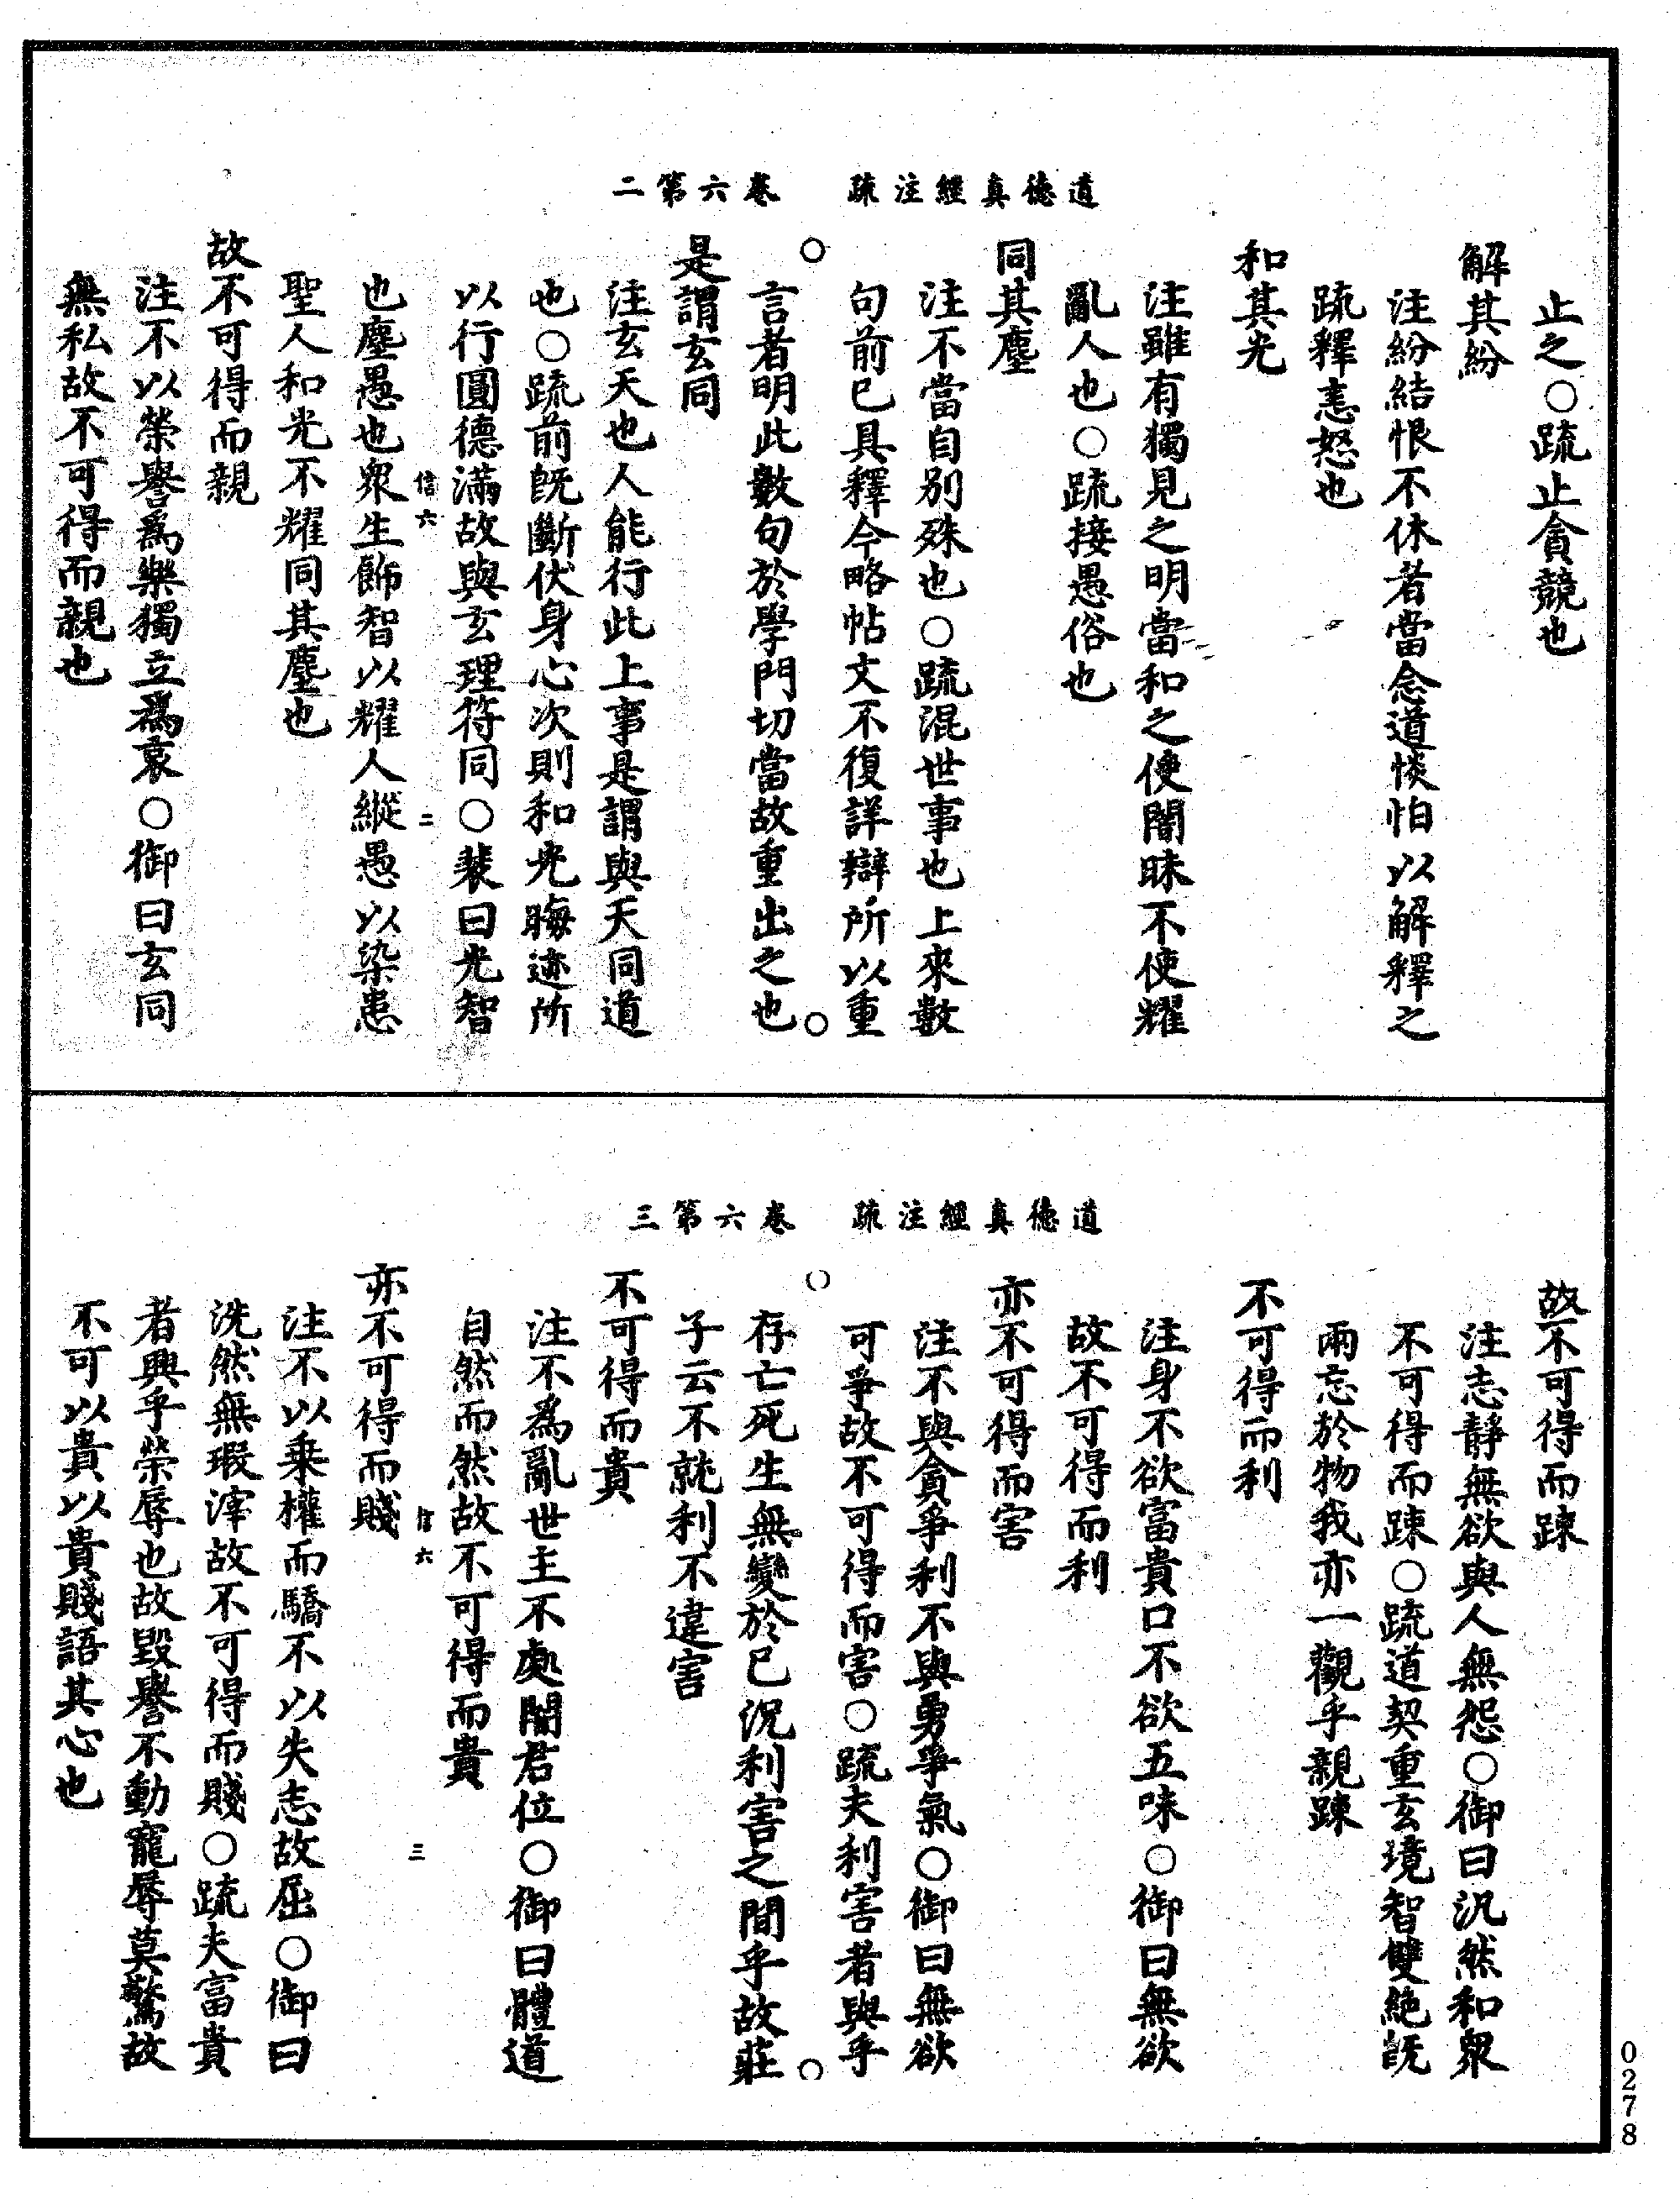 道德真經注疏　卷六第二
止之○疏止貪競也
解其紛
注紛結恨不休者當念道惔怕以解釋之
疏釋恚怒也
和其光
注雖有獨見之明當和之使闇昧不使耀
亂人也○疏接愚俗也
同其塵
注不當自別殊也○疏混世事也上來數
句前已具釋今略帖文不復詳辯所以重
言者明此數句於學門切當故重出之也
是謂玄同
注玄天也人能行此上事是謂與天同道
也○疏前既斷伏身心次則和光晦迹所
以行圓德滿故與玄理符同○裴曰光智
信六　二
也塵愚也衆生飾智以耀人縱愚以染患
聖人和光不耀同其塵也
故不可得而親
注不以榮譽爲樂獨立爲哀○御曰玄同
無私故不可得而親也
道德真經注疏　卷六第三
故不可得而踈
注志靜無欲與人無怨○御曰汎然和衆
不可得而踈○疏道契重玄境智雙絶旣
兩忘於物我亦一觀乎親踈
不可得而利
注身不欲富貴口不欲五味○御曰無欲
故不可得而利
亦不可得而害
注不與貪爭利不與勇爭氣○御曰無欲
可爭故不可得而害○疏夫利害者與乎
存亡死生無變於已況利害之間乎故莊
子云不就利不違害
不可得而貴
注不爲亂世主不處闇君位○御曰體道
自然而然故不可得而貴
信六　三
亦不可得而賤
注不以乗權而驕不以失志故屈○御曰
洗然無瑕滓故不可得而賤○疏夫富貴
者興乎榮辱也故毀譽不動寵辱莫驚故
不可以貴以貴賤語其心也
0278